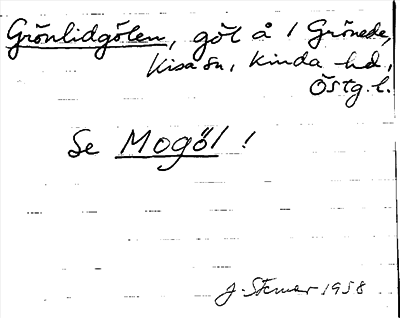 Grönlidgölen, göl å 1 Grönede,
Kisa sn, Kinda hd,
Östg. l.
Se Mogöl !
J. 1958